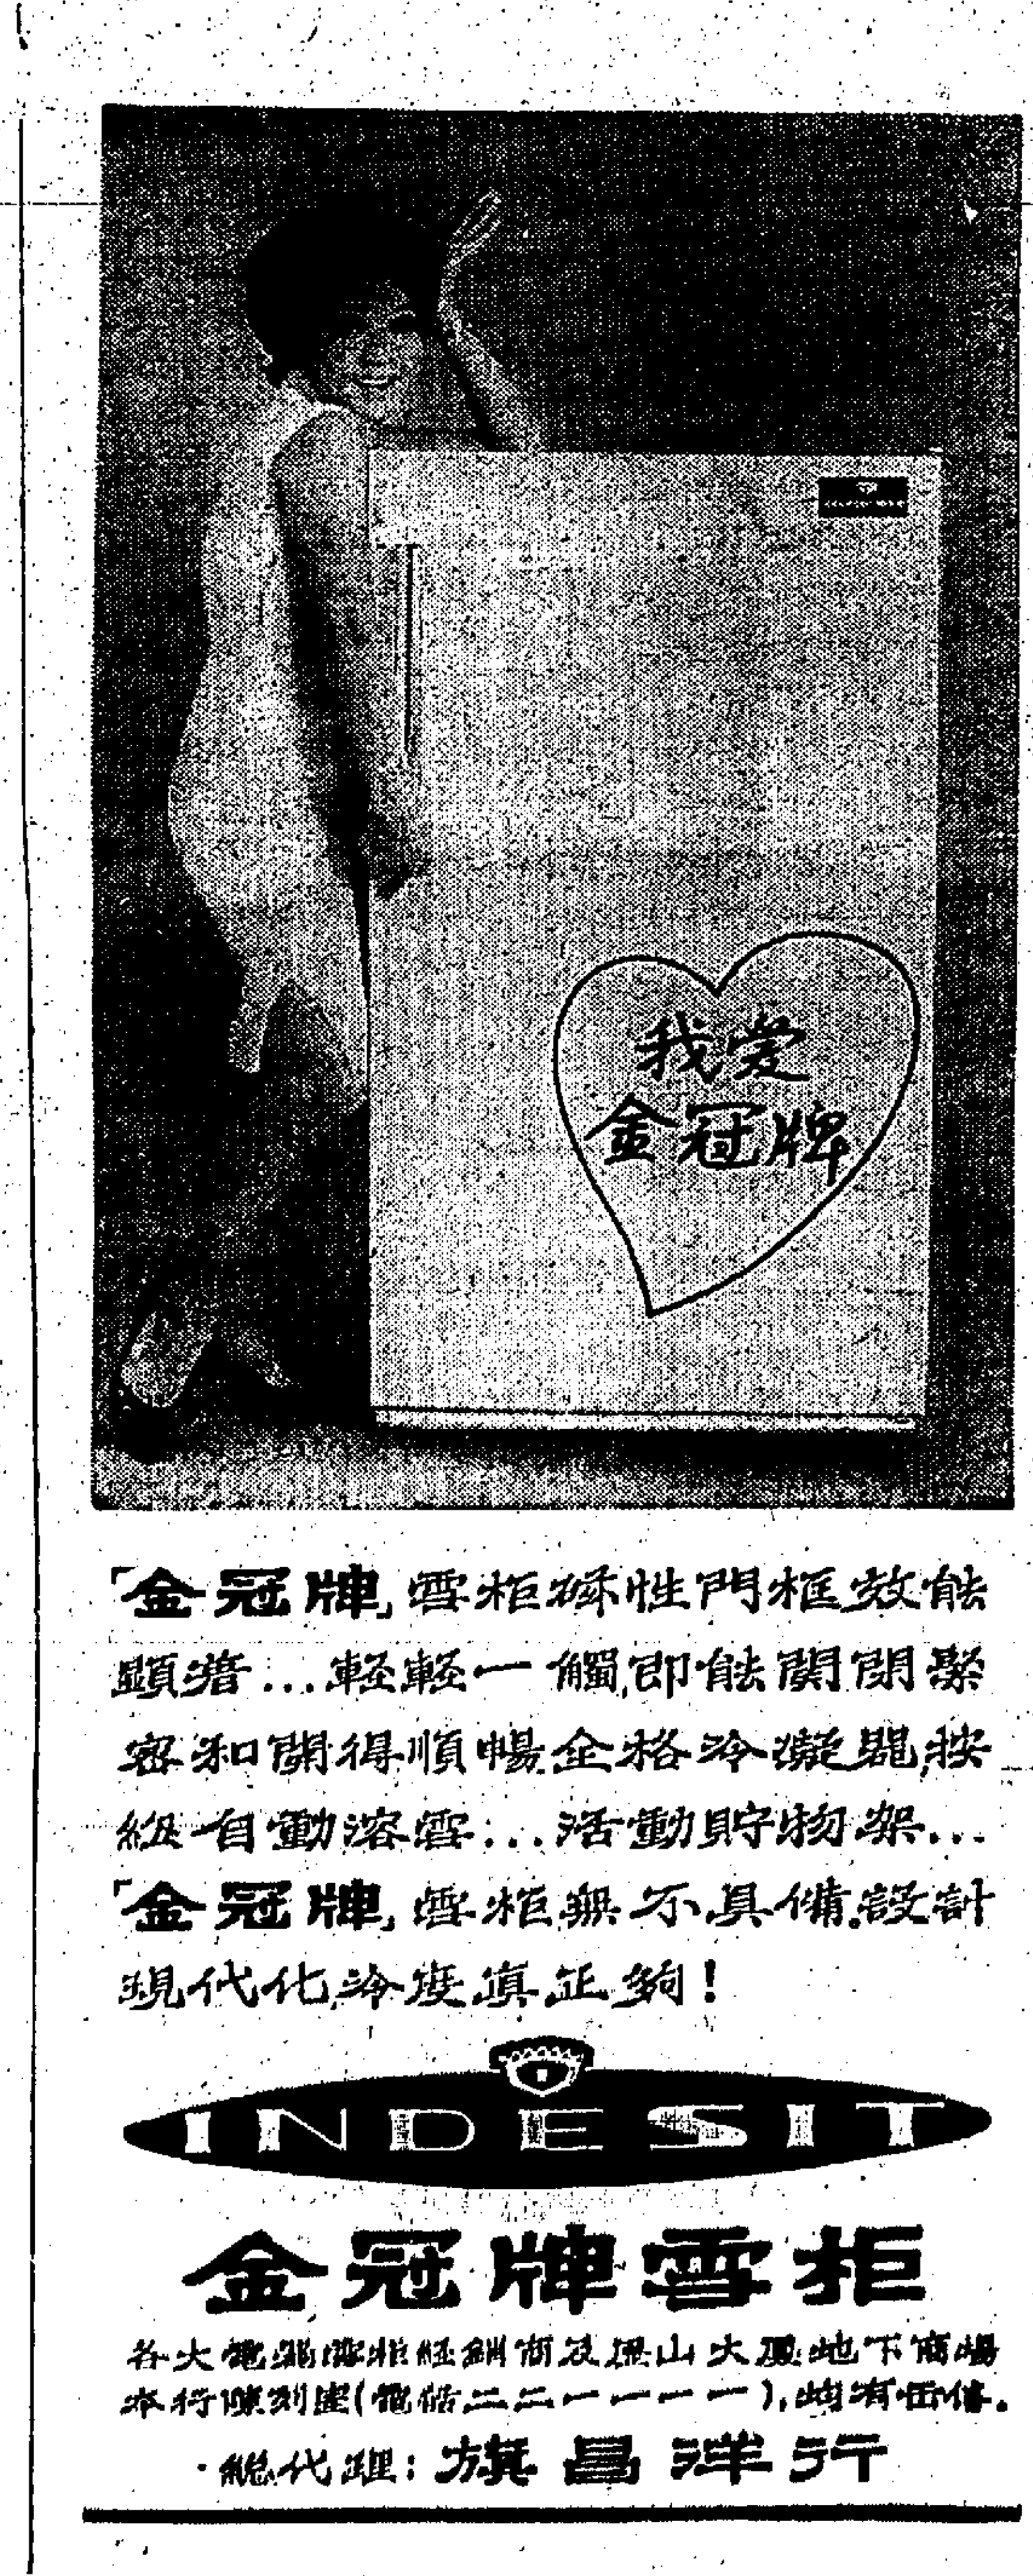 我愛
金冠牌
「金冠牌」雪柜磁性門框效能
顯著...輕輕一觸,即能開閉緊
密和開得順暢,企格冷凝器,按
鈕自動溶雪...活動貯物架...
「金冠牌」雪柜無不具備,設計
現代化,冷度真正夠!
INDESIT
金冠牌雪柜
各大電器雪柜經銷商及 山大厦地下商場
本行陳列室(電話二二一一一一),均有出售。
總代理:旗昌洋行